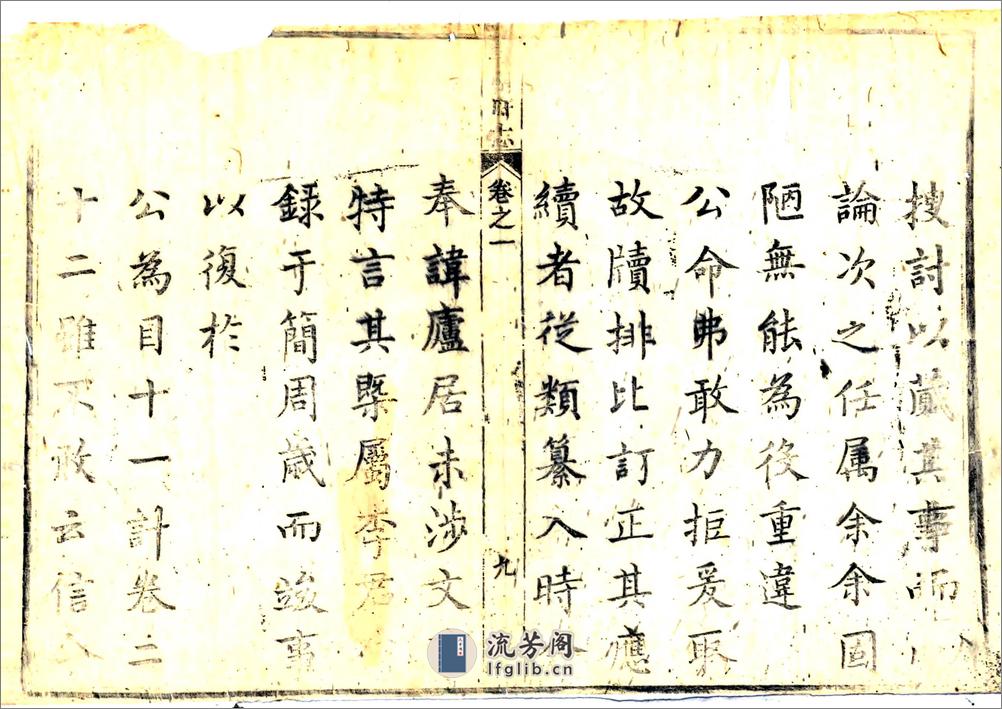 搜討以蕆其事而
論次之任属余余固
陋無能為後重違
公命弗敢力拒爰取
故牘排比訂正其應
續者從類纂入時
卷之一
九
奉諱廬居未涉文
特言其槩屬李君
録于簡周歲而竣事
以復於
公為目十一計卷二
十二雖不敢云信
流芳阁
lfglib.cn